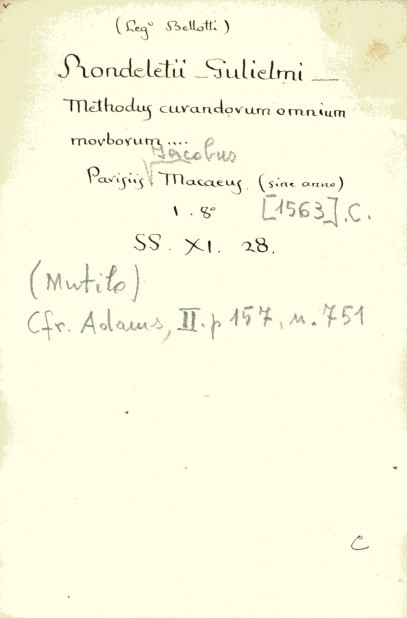 (Leg° Bellotti)
Rondeletii - Gulielmi -
Methodus curandorum omnium
morborum....
Parisiis Jacobus Macaeus. (sine anno)
1. 8° [1563]. C.
SS. XI. 28.
(Mutilo)
Cfr. Adams, II. p 157, n. 751
C